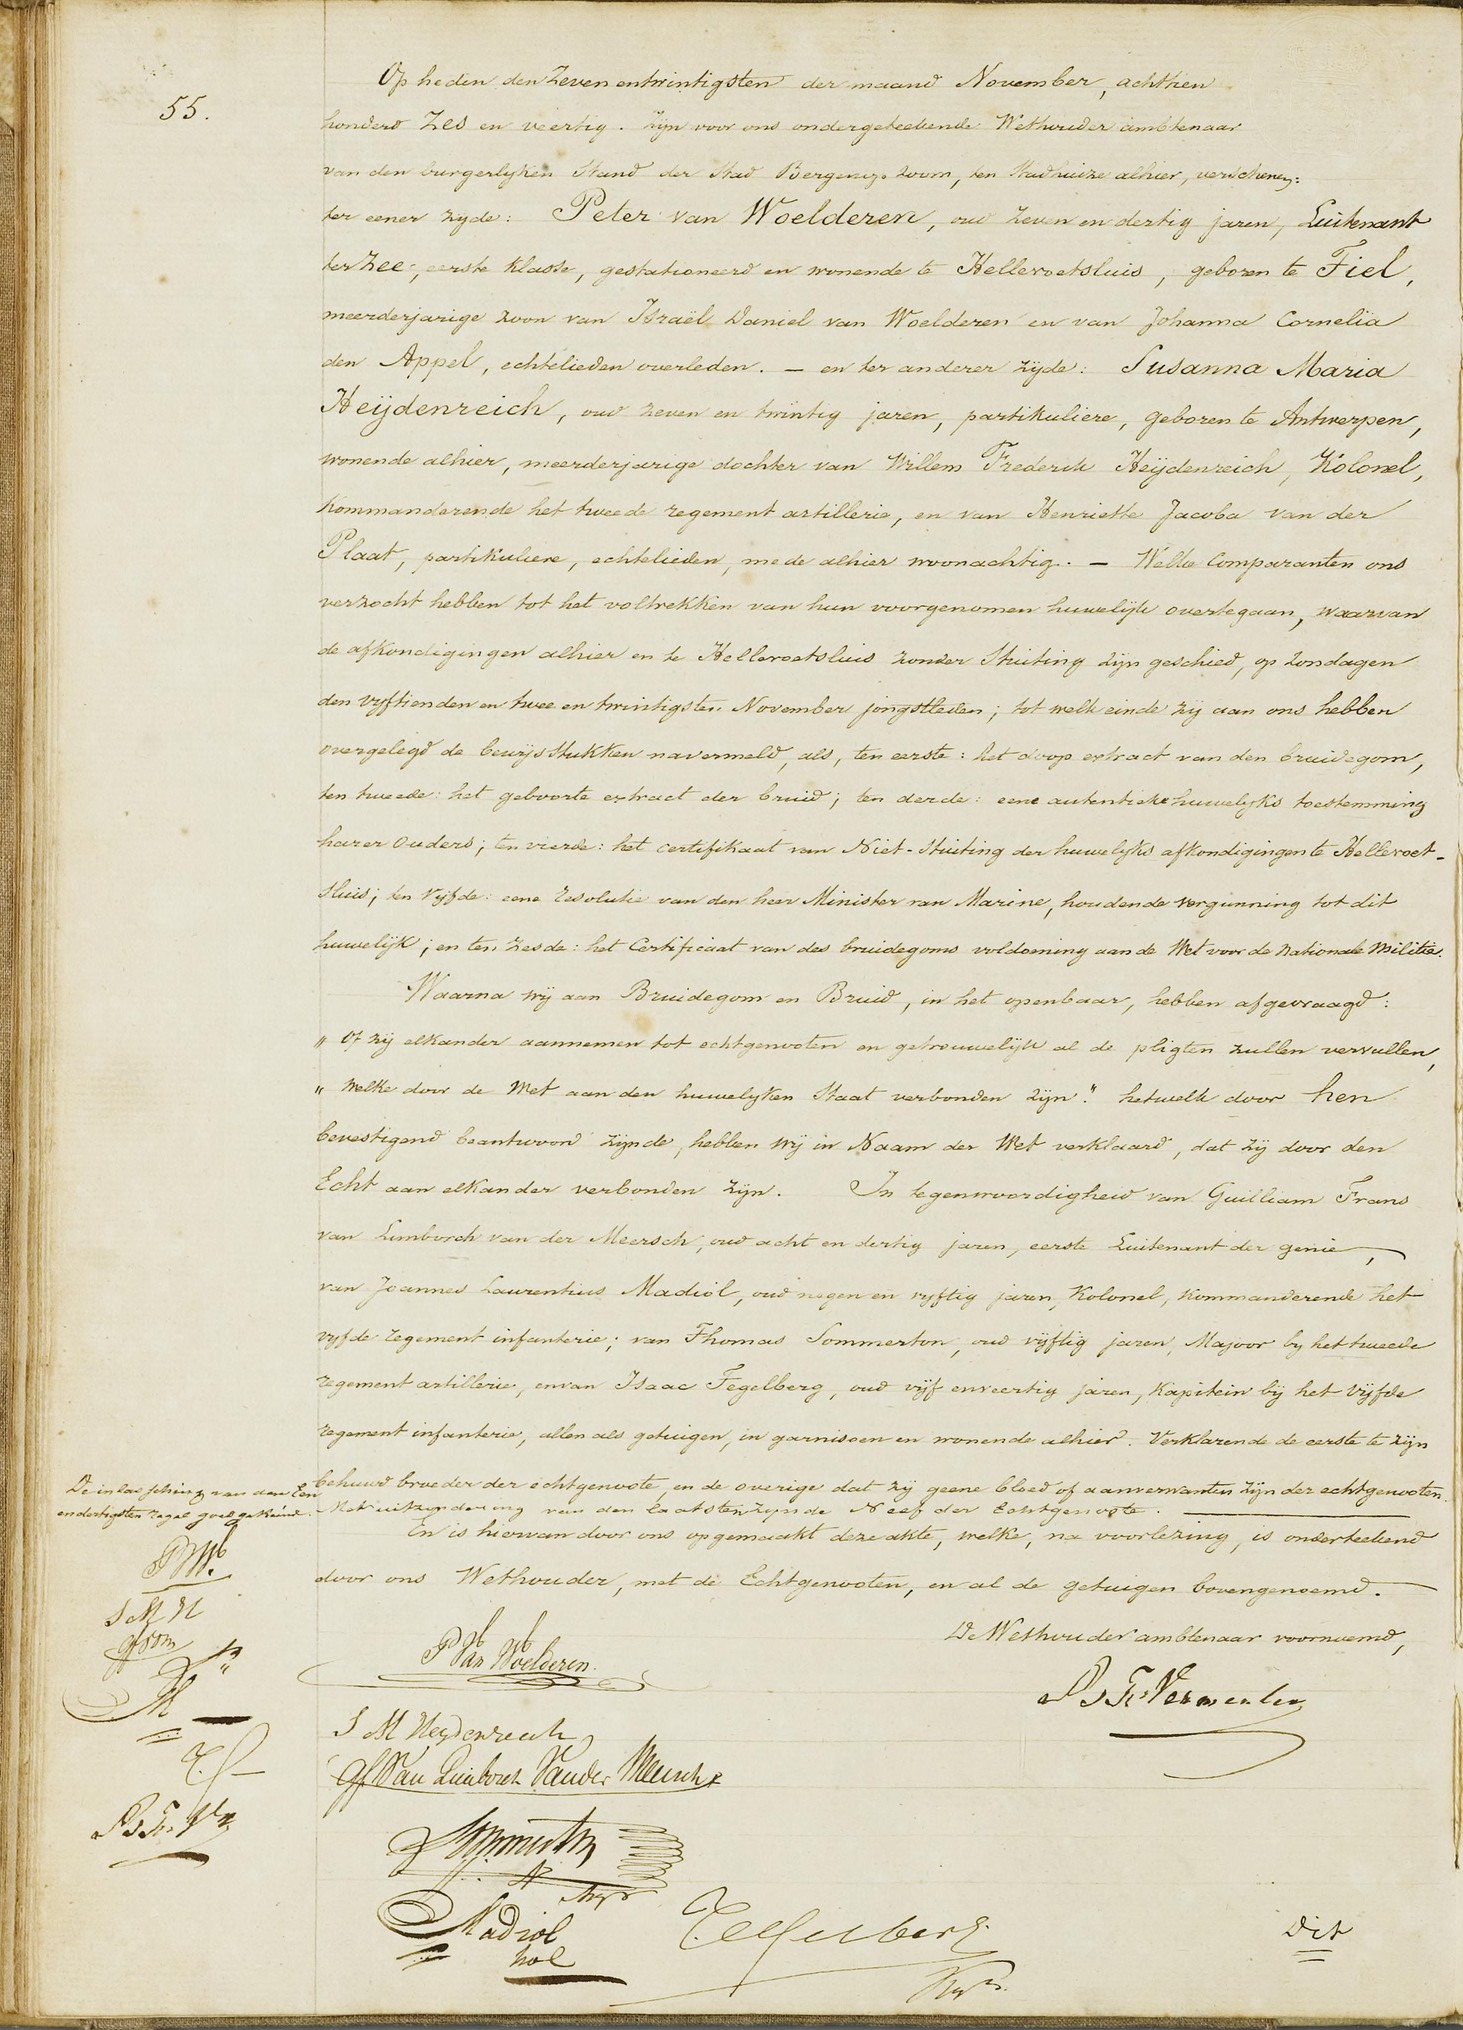 55.
Op heden den Zeven entwintigsten der maand November, achttien
honderd Zes en veertig. Zijn voor ons ondergeteekende Wethouder ambtenaar
van den burgerlyken Stand der Stad Bergen op Zoom, ten Stadhuize alhier, verschenen:
ter eener zyde: Peter van Woelderen, oud zeven en dertig jaren, Luitenant
ter Zee, eerste Klasse, gestationeerd en wonende te Hellevoetsluis, geboren te Tiel,
meerderjarige zoon van Israël Daniel van Woelderen en van Johanna Cornelia
den Appel, echtelieden overleden. — en ter anderer zijde: Susanna Maria
Heijdenreich, oud zeven en twintig jaren, partikuliere, geboren te Antwerpen,
wonende alhier, meerderjarige dochter van Willem Frederik Heijdenreich, Kolonel,
Kommanderende het tweede regement artillerie, en van Henriette Jacoba van der
Plaat, partikuliere, echtelieden, mede alhier woonachtig. — Welke Comparanten ons
verzocht hebben tot het voltrekken van hun voorgenomen huwelijk overtegaan, waarvan
de afkondigingen alhier en te Hellevoetsluis zonder Stuiting zijn geschied, op Zondagen
den vyftienden en twee en twintigsten November jongstleden; tot welk einde zij aan ons hebben
overgelegd de bewijs Stukken navermeld, als, ten eerste: het doop extract van den bruidegom,
ten tweede: het geboorte extract der bruid; ten derde: eene autentieke huwelyks toestemming
harer Ouders; ten vierde: het certifikaat van Niet-Stuiting der huwelyks afkondigingen te Hellevoet-
sluis; ten vijfde: eene resolutie van den heer Minister van Marine, houdende vergunning tot dit
huwelijk; en ten zesde: het Certificaat van des bruidegoms voldoening aan de Wet voor de Nationale Militie.
Waarna wij aan Bruidegom en Bruid, in het openbaar, hebben afgevraagd:
„ Of zij elkander aannemen tot echtgenooten en getrouwelijk al de pligten zullen vervullen,
„ welke door de Wet aan den huwelyken Staat verbonden zijn." hetwelk door hen
bevestigend beantwoord zijnde, hebben wij in Naam der Wet verklaard, dat zij door den
Echt aan elkander verbonden zijn. In tegenwoordigheid van Guilliam Frans
van Limborch van der Meersch, oud acht en dertig jaren, eerste Luitenant der genie,
van Joannes Laurentius Madiol, oud negen en vyftig jaren, Kolonel, kommanderende het
vyfde regement infanterie; van Thomas Sommerton, oud vijftig jaren, Majoor by het tweede
regement artillerie, en van Isaac Tegelberg, oud vijf en veertig jaren, Kapitein bij het vijfde
regement infanterie, allen als getuigen, in garnisoen en wonende alhier. Verklarende de eerste te zijn
behuwd broeder der echtgenoote, en de overige dat zij geene bloed of aanverwanten zijn der echtgenooten.
Met uitzondering van den laatsten zijnde Neef der Echtgenoote.
En is hiervan door ons opgemaakt deze akte, welke, na voorlezing, is onderteekend
door ons Wethouder, met de Echtgenooten, en al de getuigen bovengenoemd.
De Wethouder ambtenaar voornoemd,
De inlasschingen van den Een
endertigsten regel goedgekeurd.
PVW.
S M H
P Van Woelderen.
Ps Fs Vermeulen
S M Heydenreich
GF Van Limborch Van der Meersch
Sommerton
Majr
Madiol
Kol
Tegelberg
Kapn.
Dit